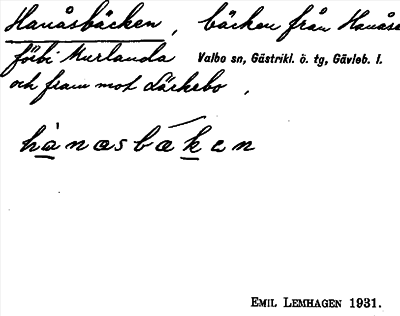 Hanåsbäcken, bäcken från Hanåse
förbi Kurlanda Valbo sn, Gästrikl. ö. tg, Gävleb. l.
och fram mot Läckebo,
hànasbáken
EMIL LEMHAGEN 1931.